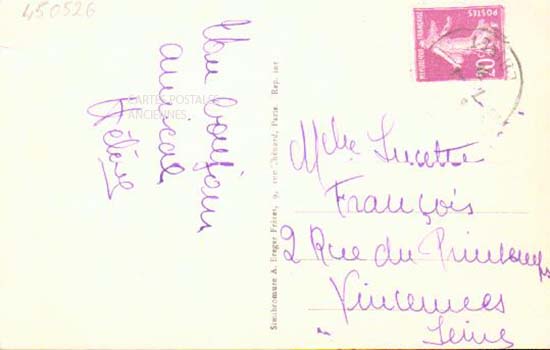 450526
Un bonjour
amical
Hélène
CARTES POSTALES
ANCIENNES
Simibromure A. Breger Frères, 9, rue Thénard, Paris. Rep. int
POSTES
REPUBLIQUE FRANÇAISE
20c
Melle Lucette
François
2 Rue du Printemps
Vincennes
Seine